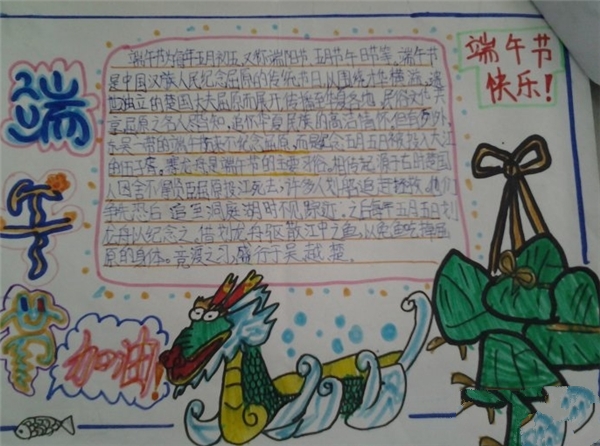 端午节
端午节为每年五月初五,又称端阳节,五月节午日节等。端午节
是中国汉族人民纪念屈原的传统节日,以围绕才华横溢、遗
世独立的楚国大夫屈原而展开,传播至华夏各地,民俗文化共
享屈原之名人尽皆知,追怀华夏民族的高洁情怀。但有例外,
东吴一带的端午节 不纪念屈原,而是纪念五月五日被投入大江
的伍子胥。赛龙舟是端午节的主要习俗。相传起源于古时楚国
人因舍不得贤臣屈原投江死去,许多人划船追赶拯救。他们
争先恐后,追至洞庭湖时不见踪迹。之后每年五月五日划
龙舟以纪念之。借划龙舟驱散江中之鱼,以免鱼吃掉屈
原的身体。竞渡之习,盛行于吴、越、楚。
端午节
快乐!
加油!